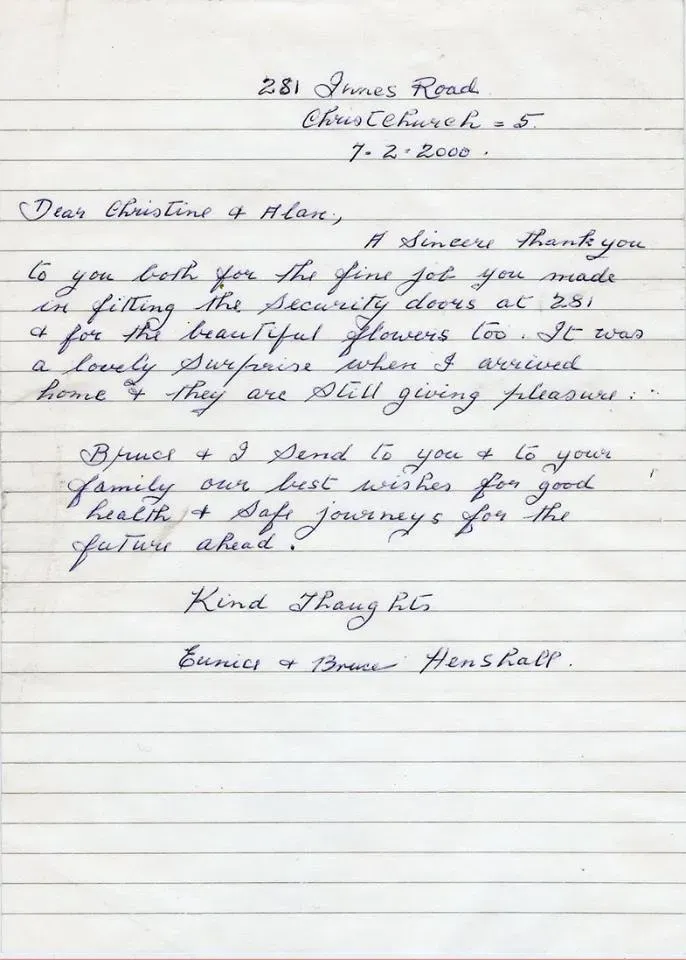 281 Innes Road
Christchurch = 5.
7.2.2000.
Dear Christine & Alan,
A Sincere thank you
to you both for the fine job you made
in fitting the security doors at 281
& for the beautiful flowers too. It was
a lovely surprise when I arrived
home & they are still giving pleasure:
Bruce & I send to you & to your
family our best wishes for good
health & safe journeys for the
future ahead.
Kind Thoughts
Eunice & Bruce Henshall.